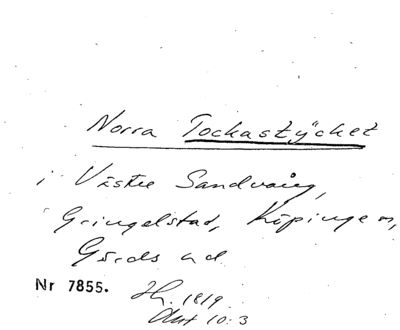 Norra Tockastycket
i Västra Sandvång,
Gringelstad, Köpinge sn,
Gärds hd
Nr 7855.
1819
10:3